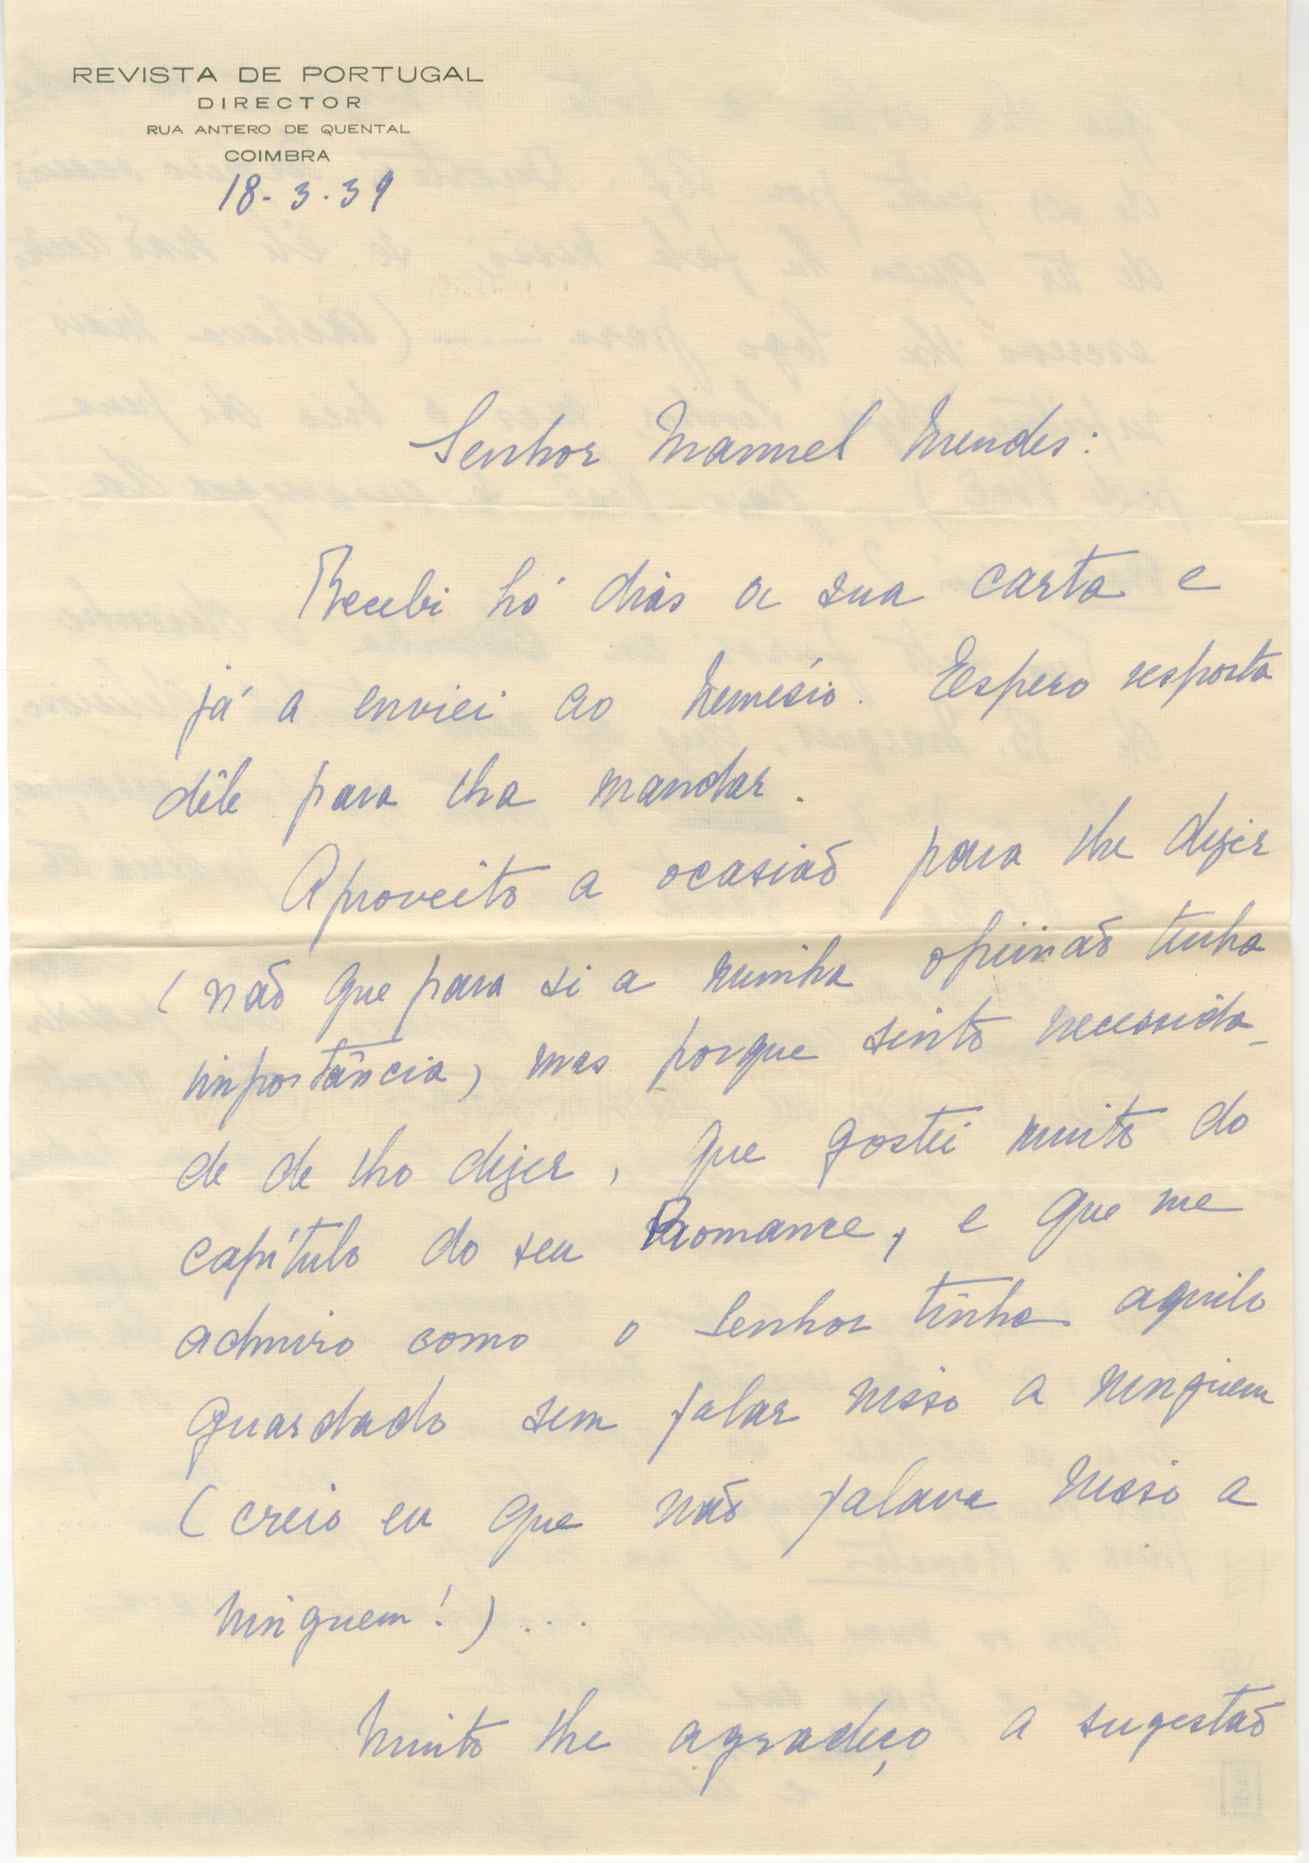 REVISTA DE PORTUGAL
DIRECTOR
RUA ANTERO DE QUENTAL
COIMBRA
18-3-39
Senhor Manuel Mendes:
Recebi há dias a sua carta e
já a enviei ao Nemésio. Espero resposta
dêle para lha mandar.
Aproveito a ocasião para lhe dizer
(não que para si a minha opinião tenha
importância, mas porque sinto necessida-
de de lho dizer, que gostei muito do
capítulo do seu Romance, e que me
admiro como o Senhor tinha aquilo
guardado sem falar nisso a ninguem
(creio eu que não falava nisso a
ninguem!)...
Muito lhe agradeço a sugestão